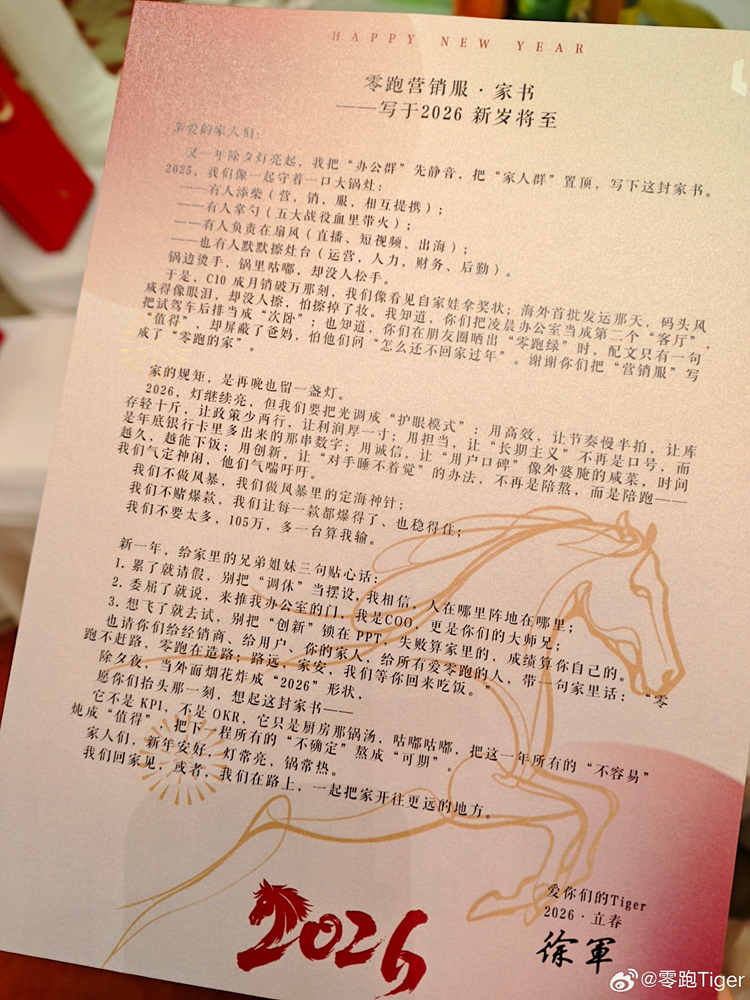 HAPPY NEW YEAR
零跑营销服·家书
——写于2026 新岁将至
亲爱的家人们:
又一年除夕灯亮起,我把“办公群”先静音,把“家人群”置顶,写下这封家书。
2025,我们像一起守着一口大锅灶:
——有人添柴(营,销,服,相互提携);
——有人掌勺(五大战役血里带火);
——有人负责在扇风(直播、短视频、出海);
——也有人默默擦灶台(运营,人力,财务、后勤)。
锅边烫手,锅里咕嘟,却没人松手。
于是,C10 成月销破万那刻,我们像看见自家娃拿奖状;海外首批发运那天,码头风
咸得像眼泪,却没人擦,怕擦掉了妆。我知道,你们把凌晨办公室当成第二个“客厅”,
把试驾车后排当成“次卧”;也知道,你们在朋友圈晒出“零跑绿”时,配文只有一句
“值得”,却屏蔽了爸妈,怕他们问“怎么还不回家过年”。谢谢你们把“营销服”写
成了“零跑的家”。
家的规矩,是再晚也留一盏灯。
2026,灯继续亮,但我们要把光调成“护眼模式”:用高效,让节奏慢半拍,让库
存轻十斤,让政策少两行,让利润厚一寸;用担当,让“长期主义”不再是口号,而
是年底银行卡里多出来的那串数字;用诚信,让“用户口碑”像外婆腌的咸菜,时间
越久,越能下饭;用创新,让“对手睡不着觉”的办法,不再是陪熬,而是陪跑——
我们气定神闲,他们气喘吁吁。
我们不做风暴,我们做风暴里的定海神针;
我们不赌爆款,我们让每一款都爆得了、也稳得住;
我们不要太多,105万,多一台算我输。
新一年,给家里的兄弟姐妹三句贴心话:
1. 累了就请假,别把“调休”当摆设,我相信,人在哪里阵地在哪里;
2. 委屈了就说,来推我办公室的门,我是COO,更是你们的大师兄;
3. 想飞了就去试,别把“创新”锁在 PPT,失败算家里的,成绩算你自己的。
也请你们给经销商、给用户、你的家人,给所有爱零跑的人,带一句家里话:“零
跑不赶路,零跑在造路;路远,家安,我们等你回来吃饭。”
除夕夜,当外面烟花炸成“2026”形状,
愿你们抬头那一刻,想起这封家书——
它不是 KPI,不是 OKR,它只是厨房那锅汤,咕嘟咕嘟,把这一年所有的“不容易”
炖成“值得”,把下一程所有的“不确定”熬成“可期”。
家人们,新年安好,灯常亮,锅常热。
我们回家见,或者,我们在路上,一起把家开往更远的地方。
爱你们的Tiger
2026·立春
徐军
2026
@零跑Tiger